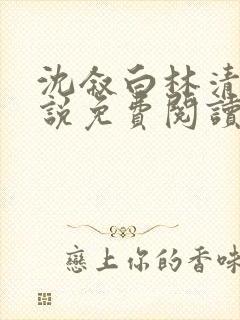 沈叙白林清
說免費閱讀
戀上你的香味